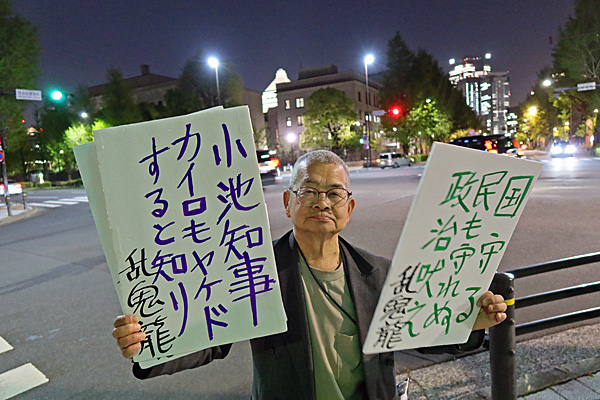 小池知事
カイロもヤケド
すると知り
乱鬼龍
国守る
民も守れぬ
政治吠え
乱鬼龍